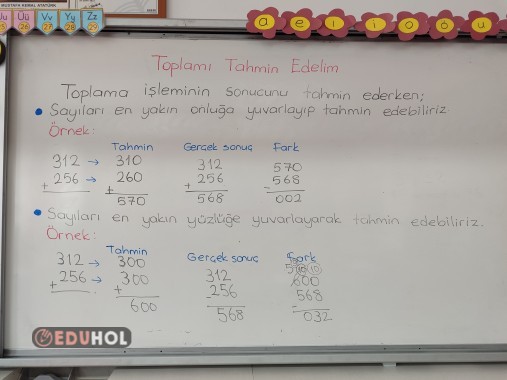 MUSTAFA KEMAL ATATÜRK
Uu Üü Vv Yy Zz
26 27 28 29
a e ı i o ö u
Toplamı Tahmin Edelim
Toplama işleminin sonucunu tahmin ederken;
• Sayıları en yakın onluğa yuvarlayıp tahmin edebiliriz.
Örnek:
Tahmin Gerçek sonuç Fark
312 → 310 312 570
+ 256 → + 260 + 256 - 568
570 568 002
• Sayıları en yakın yüzlüğe yuvarlayarak tahmin edebiliriz.
Örnek:
Tahmin Gerçek sonuç Fark
312 → 300 312 600
+ 256 → + 300 256 - 568
600 568 032
EDUHOL